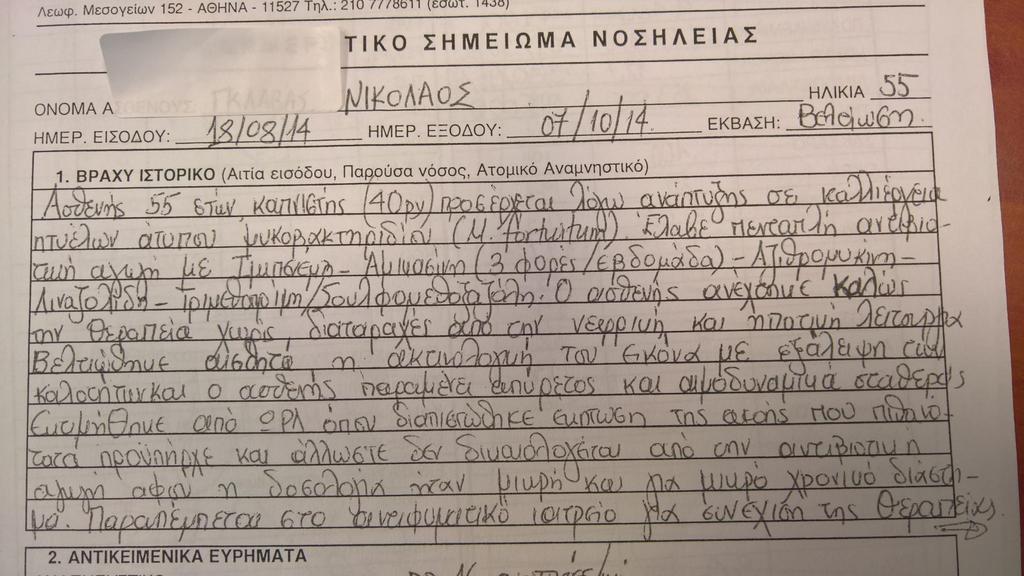 Λεωφ. Μεσογείων 152 - ΑΘΗΝΑ - 11527 Τηλ.: 210 7778611 (εσωτ. 1438)
ΤΙΚΟ ΣΗΜΕΙΩΜΑ ΝΟΣΗΛΕΙΑΣ
ΟΝΟΜΑ Α ΝΙΚΟΛΑΟΣ ΗΛΙΚΙΑ 55
ΗΜΕΡ. ΕΙΣΟΔΟΥ: 18/08/14 ΗΜΕΡ. ΕΞΟΔΟΥ: 07/10/14 ΕΚΒΑΣΗ: Βελτίωση
1. ΒΡΑΧΥ ΙΣΤΟΡΙΚΟ (Αιτία εισόδου, Παρούσα νόσος, Ατομικό Αναμνηστικό)
Ασθενής 55 ετών, καπνιστής (40py) προσέρχεται λόγω ανάπτυξης σε καλλιέργεια
πτυέλων άτυπου μυκοβακτηριδίου (M. fortuitum). Έλαβε πενταπλή αντιβιο-
τική αγωγή με - Αμικασίνη (3 φορές/εβδομάδα) - Αζιθρομυκίνη -
Λιναζολίδη - Τριμεθοπρίμη/Σουλφομεθοξαζόλη. Ο ασθενής ανέχθηκε καλώς
την θεραπεία χωρίς διαταραχές από την νεφρική και ηπατική λειτουργία
Βελτιώθηκε αισθητά η ακτινολογική του εικόνα με εξάλειψη των
και ο ασθενής παραμένει απύρετος και αιμοδυναμικά σταθερός
Εκτιμήθηκε από ΩΡΛ όπου διαπιστώθηκε έκπτωση της ακοής που πιθανό-
τατα προϋπήρχε και άλλωστε δεν δικαιολογείται από την αντιβιοτική
αγωγή αφού η δοσολογία ήταν μικρή και για μικρό χρονικό διάστη-
μα. Παραπέμπεται στο αντιφυματικό ιατρείο για συνέχιση της θεραπείας
2. ΑΝΤΙΚΕΙΜΕΝΙΚΑ ΕΥΡΗΜΑΤΑ